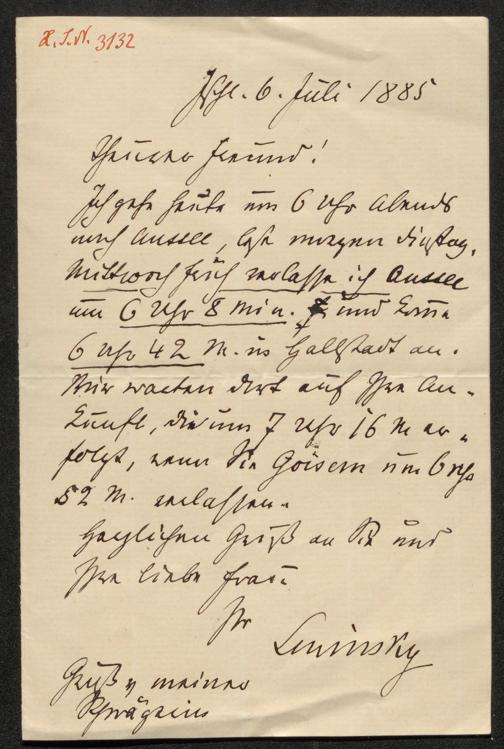 H. I. N. 3132
Ischl. 6. Juli 1885
Theurer Freund!
Ich gehe heute um 6 Uhr Abends
nach Aussee, lese morgen Dienstag,
Mittwoch früh verlasse ich Aussee
um 6 Uhr 8 Min. und komme
6 Uhr 42 M. in Hallstadt an.
Wir warten dort auf Ihre An-
kunft, die um 7 Uhr 16 M er-
folgt, wenn Sie Goisern um 6 Uhr
52 M. verlassen.
Herzlichen Gruß an Sie und
Ihre liebe Frau
Ihr
Lewinsky
Gruß v meiner
Schwägerin